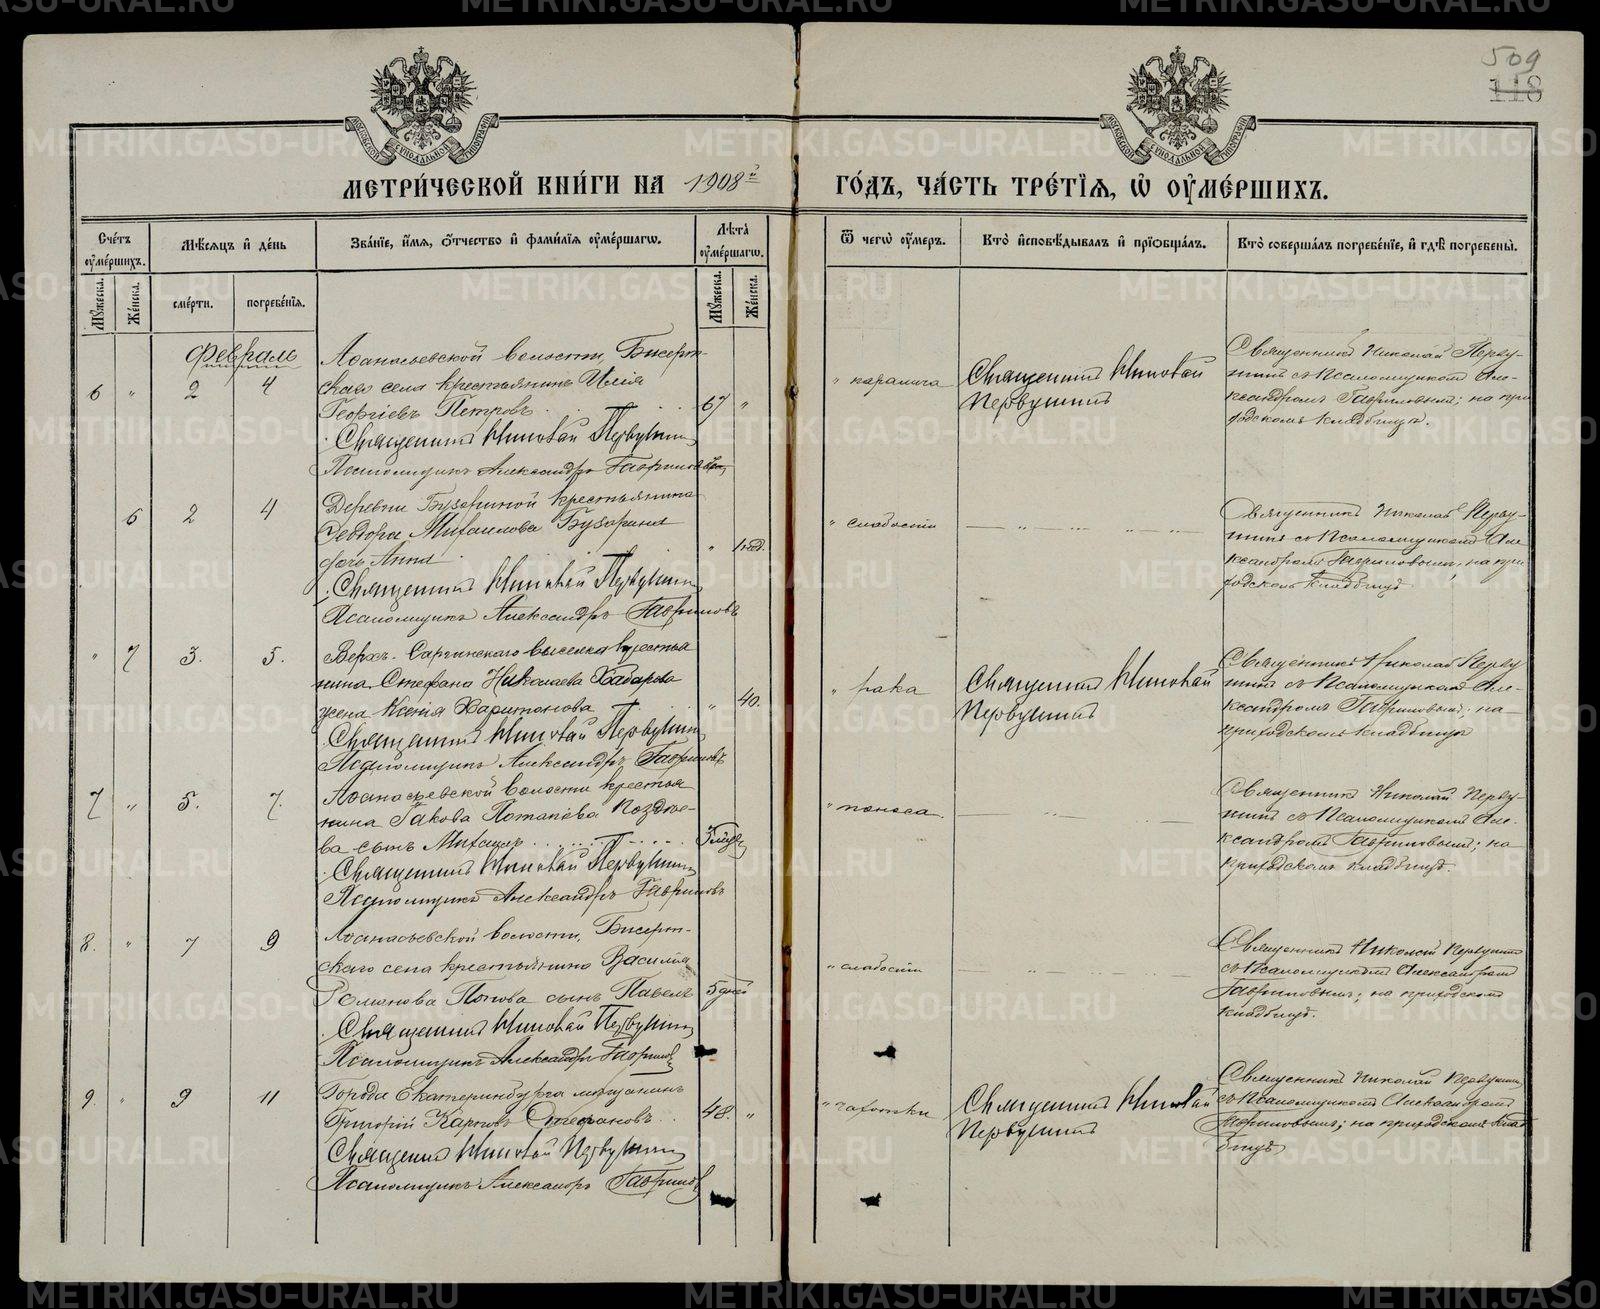 509
118
МОСКОВСКОЙ СѴНОДАЛЬНОЙ ТИПОГРАФІИ
МОСКОВСКОЙ СѴНОДАЛЬНОЙ ТИПОГРАФІИ
МЕТРИ́ЧЕСКОЙ КНИ́ГИ НА 1908й ГО́ДЪ, ЧА́СТЬ ТРЕ́ТІѦ, Ѡ҆ ОУ҆МЕ́РШИХЪ.
Сче́тъ оу҆ме́ршихъ.
Мѣ́сѧцъ и҆ де́нь
Зва́нїе, и҆́мѧ, ѻ҆́тчество и҆ фами́лїѧ оу҆ме́ршагѡ.
Лѣ́та оу҆ме́ршагѡ.
Ѿ чегѡ̀ оу҆́меръ.
Кто̀ и҆сповѣ́дывалъ и҆ прїѡбща́лъ.
Кто̀ соверша́лъ погребе́нїе, и҆ гдѣ̀ погребены̀.
Мꙋ́жеска.
Же́нска.
сме́рти.
погребе́нїѧ.
Мꙋ́жеска.
Же́нска.
Февраль
6 " 2 4
Аѳанасьевской волости, Бисерт-
скаго села крестьянинъ Илія
Георгіевъ Петровъ 67 "
Священникъ Николай Первушинъ
Псаломщикъ Александръ Гавриловъ
" паралича
Священникъ Николай
Первушинъ
Священникъ Николай Перву-
шинъ съ Псаломщикомъ Але-
ксандромъ Гавриловымъ; на при-
ходскомъ кладбищѣ.
6 2 4
Деревни крестьянина
Ѳеодора Михаилова
дочь Анна " 1 нед.
Священникъ Николай Первушинъ
Псаломщикъ Александръ Гавриловъ
" слабости
Священникъ Николай Перву-
шинъ съ Псаломщикомъ Але-
ксандромъ Гавриловымъ, на при-
ходскомъ кладбищѣ
" 7 3. 5.
Верхъ-Саргинскаго выселка крестья
нина Стефана Николаева
жена Ксенія Харитонова " 40.
Священникъ Николай Первушинъ
Псаломщикъ Александръ Гавриловъ
" рака
Священникъ Николай
Первушинъ
Священникъ Николай Перву
шинъ съ Псаломщикомъ Але-
ксандромъ Гавриловымъ; на
приходскомъ кладбищѣ
7 " 5. 7.
Аѳанасьевской волости крестья
нина Іакова Потапіева Поздѣе-
ва сынъ Михаилъ
Священникъ Николай Первушинъ
Псаломщикъ Александръ Гавриловъ
" поноса
Священникъ Николай Перву-
шинъ съ Псаломщикомъ Але-
ксандромъ Гавриловымъ; на
приходскомъ кладбищѣ.
8. " 7 9
Аѳанасьевской волости, Бисерт-
скаго села крестьянина Василія
Романова Попова сынъ Павелъ 5 дней
Священникъ Николай Первушинъ
Псаломщикъ Александръ Гавриловъ
" слабости
Священникъ Николай Первушинъ
съ Псаломщикомъ Александромъ
Гавриловымъ; на приходскомъ
кладбищѣ.
9. " 9 11
Города Екатеринбурга мѣщанинъ
Григорій Карповъ Стефановъ 48. "
Священникъ Николай Первушинъ
Псаломщикъ Александръ Гавриловъ
" чахотки
Священникъ Николай
Первушинъ
Священникъ Николай Первушинъ
съ Псаломщикомъ Александромъ
Гавриловымъ; на приходскомъ клад
бищѣ
METRIKI.GASO-URAL.RU